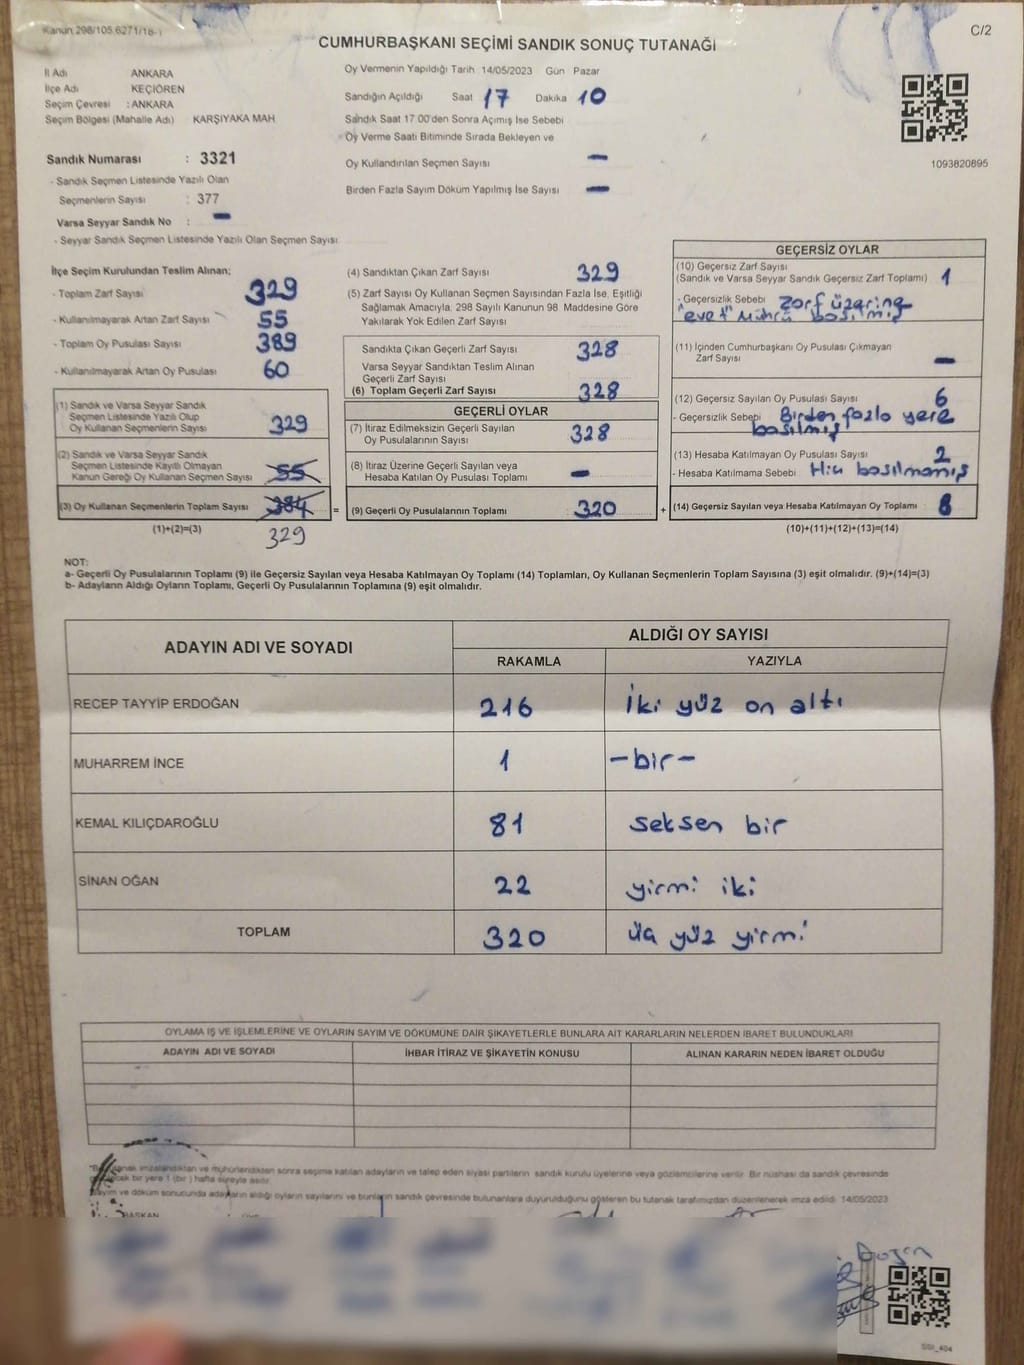 Kanun 298/105 6271/18-1
C/2
CUMHURBAŞKANI SEÇİMİ SANDIK SONUÇ TUTANAĞI
İl Adı ANKARA
İlçe Adı KEÇİÖREN
Seçim Çevresi : ANKARA
Seçim Bölgesi (Mahalle Adı) KARŞIYAKA MAH
Sandık Numarası : 3321
- Sandık Seçmen Listesinde Yazılı Olan
Seçmenlerin Sayısı : 377
Varsa Seyyar Sandık No : -
- Seyyar Sandık Seçmen Listesinde Yazılı Olan Seçmen Sayısı
Oy Vermenin Yapıldığı Tarih 14/05/2023 Gün Pazar
Sandığın Açıldığı Saat 17 Dakika 10
Sandık Saat 17 00'den Sonra Açımış İse Sebebi
Oy Verme Saati Bitiminde Sırada Bekleyen ve
Oy Kullandırılan Seçmen Sayısı -
Birden Fazla Sayım Döküm Yapılmış İse Sayısı -
1093820895
İlçe Seçim Kurulundan Teslim Alınan;
- Toplam Zarf Sayısı 329
- Kullanılmayarak Artan Zarf Sayısı 55
- Toplam Oy Pusulası Sayısı 389
- Kullanılmayarak Artan Oy Pusulası 60
(1) Sandık ve Varsa Seyyar Sandık
Seçmen Listesinde Yazılı Olup
Oy Kullanan Seçmenlerin Sayısı 329
(2) Sandık ve Varsa Seyyar Sandık
Seçmen Listesinde Kayıtlı Olmayan
Kanun Gereği Oy Kullanan Seçmen Sayısı 55
(3) Oy Kullanan Seçmenlerin Toplam Sayısı 384
(1)+(2)=(3) 329
(4) Sandıktan Çıkan Zarf Sayısı 329
(5) Zarf Sayısı Oy Kullanan Seçmen Sayısından Fazla İse, Eşitliği
Sağlamak Amacıyla, 298 Sayılı Kanunun 98 Maddesine Göre
Yakılarak Yok Edilen Zarf Sayısı
Sandıkta Çıkan Geçerli Zarf Sayısı 328
Varsa Seyyar Sandıktan Teslim Alınan
Geçerli Zarf Sayısı
(6) Toplam Geçerli Zarf Sayısı 328
GEÇERLİ OYLAR
(7) İtiraz Edilmeksizin Geçerli Sayılan
Oy Pusulalarının Sayısı 328
(8) İtiraz Üzerine Geçerli Sayılan veya
Hesaba Katılan Oy Pusulası Toplamı -
= (9) Geçerli Oy Pusulalarının Toplamı 320
GEÇERSİZ OYLAR
(10) Geçersiz Zarf Sayısı
(Sandık ve Varsa Seyyar Sandık Geçersiz Zarf Toplamı) 1
- Geçersizlik Sebebi Zarf üzerine
"evet" mührü basılmış
(11) İçinden Cumhurbaşkanı Oy Pusulası Çıkmayan
Zarf Sayısı -
(12) Geçersiz Sayılan Oy Pusulası Sayısı 6
- Geçersizlik Sebebi Birden fazla yere
basılmış
(13) Hesaba Katılmayan Oy Pusulası Sayısı 2
- Hesaba Katılmama Sebebi Hiç basılmamış
+ (14) Geçersiz Sayılan veya Hesaba Katılmayan Oy Toplamı 8
(10)+(11)+(12)+(13)=(14)
NOT:
a- Geçerli Oy Pusulalarının Toplamı (9) ile Geçersiz Sayılan veya Hesaba Katılmayan Oy Toplamı (14) Toplamları, Oy Kullanan Seçmenlerin Toplam Sayısına (3) eşit olmalıdır. (9)+(14)=(3)
b- Adayların Aldığı Oyların Toplamı, Geçerli Oy Pusulalarının Toplamına (9) eşit olmalıdır.
ADAYIN ADI VE SOYADI
ALDIĞI OY SAYISI
RAKAMLA YAZIYLA
RECEP TAYYİP ERDOĞAN 216 İki yüz on altı
MUHARREM İNCE 1 -bir-
KEMAL KILIÇDAROĞLU 81 seksen bir
SİNAN OĞAN 22 yirmi iki
TOPLAM 320 üç yüz yirmi
OYLAMA İŞ VE İŞLEMLERİNE VE OYLARIN SAYIM VE DÖKÜMÜNE DAİR ŞİKAYETLERLE BUNLARA AİT KARARLARIN NELERDEN İBARET BULUNDUKLARI
ADAYIN ADI VE SOYADI İHBAR İTİRAZ VE ŞİKAYETİN KONUSU ALINAN KARARIN NEDEN İBARET OLDUĞU
imzalandıktan ve mühürlendikten sonra seçime katılan adayların ve talep eden siyasi partilerin sandık kurulu üyelerine veya gözlemcilerine verilir. Bir nüshası da sandık çevresinde
bir yere 1 (bir ) hafta süreyle asılır.
Sayım ve döküm sonucunda adayların aldığı oyların sayılarını ve bunların sandık çevresinde bulunanlara duyurulduğunu gösteren bu tutanak tarafımızdan düzenlenerek imza edildi. 14/05/2023
BAŞKAN
SSI_404